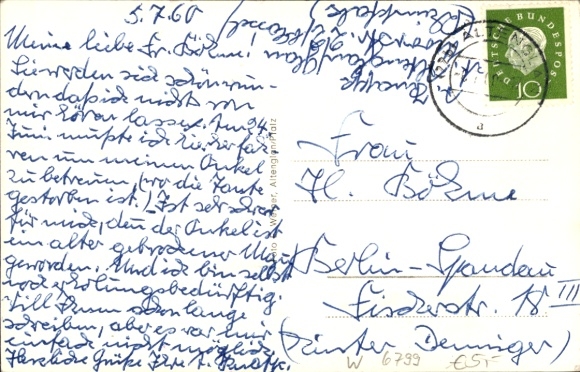 5.7.60
Meine liebe Fr. Böhme!
Sie werden sich schon wun-
dern daß ich nichts von
mir hören lasse. Am 24.
Juni mußte ich hierher fah-
ren um meinen Onkel
zu betreuen, (wo die Tante
gestorben ist.) Ist sehr schwer
für mich, denn der Onkel ist
ein alter gebrochener Mann
geworden. Und ich bin selbst
noch erholungsbedürftig.
Will Ihnen schon lange
schreiben, aber es war mir
einfach nicht möglich.
Herzliche Grüße Ihre
Altenglan
(Rheinpfalz)
Foto Weber, Altenglan/Pfalz
DEUTSCHE BUNDESPOST
10
ALTENGLAN
a
Frau
H. Böhme
Berlin-Spandau
Fischerstr. 18 III
(Hinter Denniger)
W 6799 €5,-